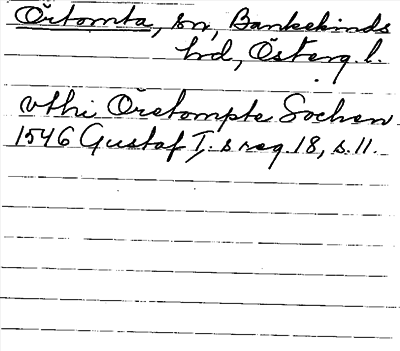 Örtomta, sn, Bankekinds
hd, Österg. l.
vthi Öretompte Sochen
1546 Gustaf I:s reg. 18, s. 11.